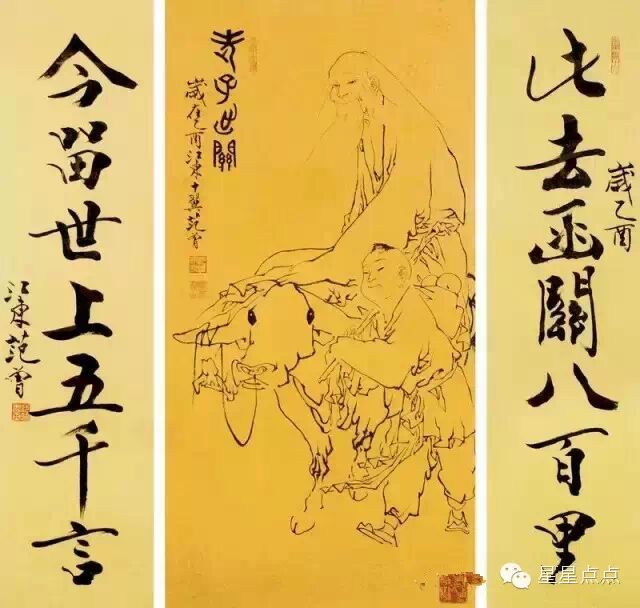 此去函關八百里
歲乙酉
老子出關
歲在乙酉江東十翼范曾
今留世上五千言
江東范曾
星星点点